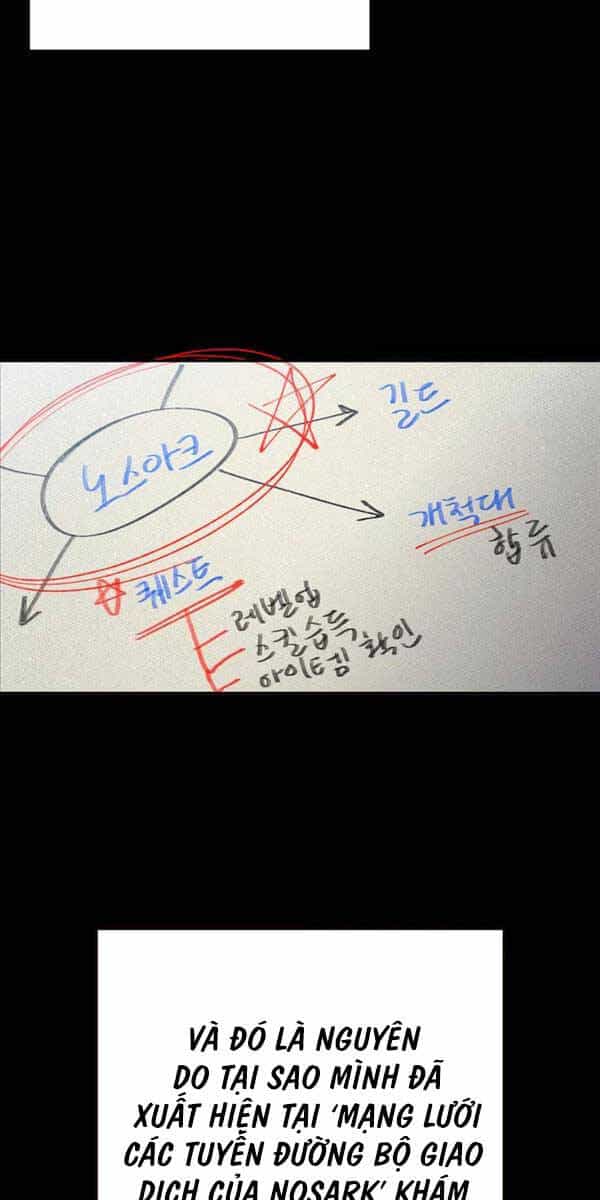 길드
노스아크
개척대
합류
퀘스트
레벨업
스킬습득
아이템 확인
VÀ ĐÓ LÀ NGUYÊN
DO TẠI SAO MÌNH ĐÃ
XUẤT HIỆN TẠI 'MẠNG LƯỚI
CÁC TUYẾN ĐƯỜNG BỘ GIAO
DỊCH CỦA NOSARK' KHÁM